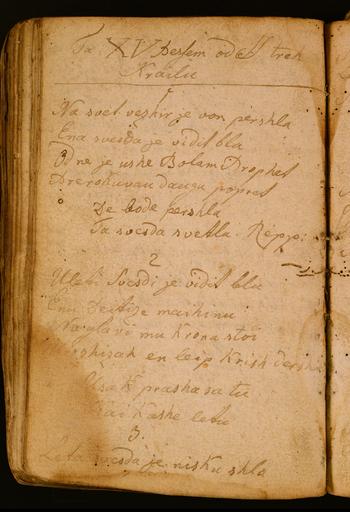 Ta XV Pessem od S treh
Krailu
1
Na svet veshir je von pershla
Ena svesda je vidit bla
Od ne je ushe Bolam Prophet
Prerokuvau daugu popret
De bode pershla
Ta svesda svetla. Repe:
2
V leti Svesdi je vidit bla
Enu Deitize maihinu
Na glavi mu Krona stoi
en leip Krish dersh
Usak prasha sa tu
Kai Kashe letu
3.
Leta svesda je nisku shla